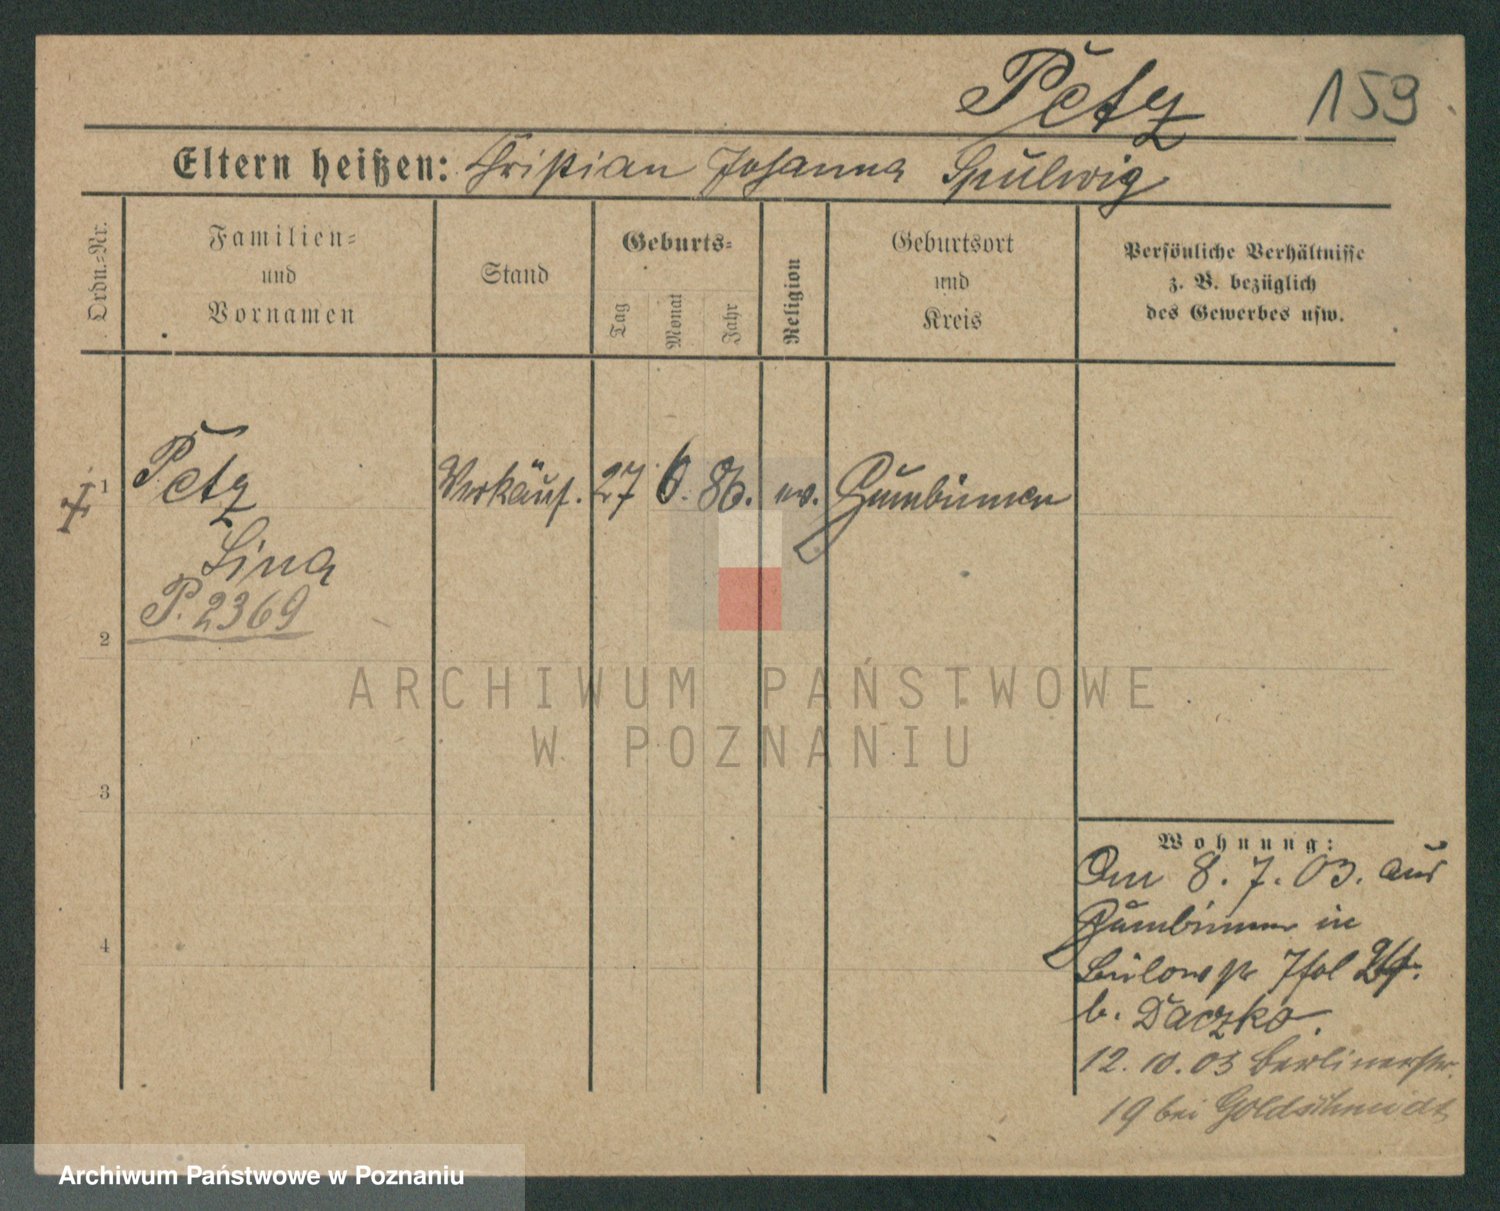 Petz 159
Eltern heißen: Christian Johanna Spulwig
Ordn.-Nr.
Familien-
und
Vornamen
Stand
Geburts-
Tag
Monat
Jahr
Religion
Geburtsort
und
Kreis
Persönliche Verhältnisse
z. B. bezüglich
des Gewerbes usw.
1 Petz Verkäuf. 27 6. 86. ev. Gumbinnen
Lina
P. 2369
2
3
4
ARCHIWUM PAŃSTWOWE
W POZNANIU
Wohnung:
Am 8. 7. 03. aus
Gumbinnen in
Bülowstr
b. Daczko.
12. 10. 03 Berlinerstr.
19 bei Goldschmidt
Archiwum Państwowe w Poznaniu